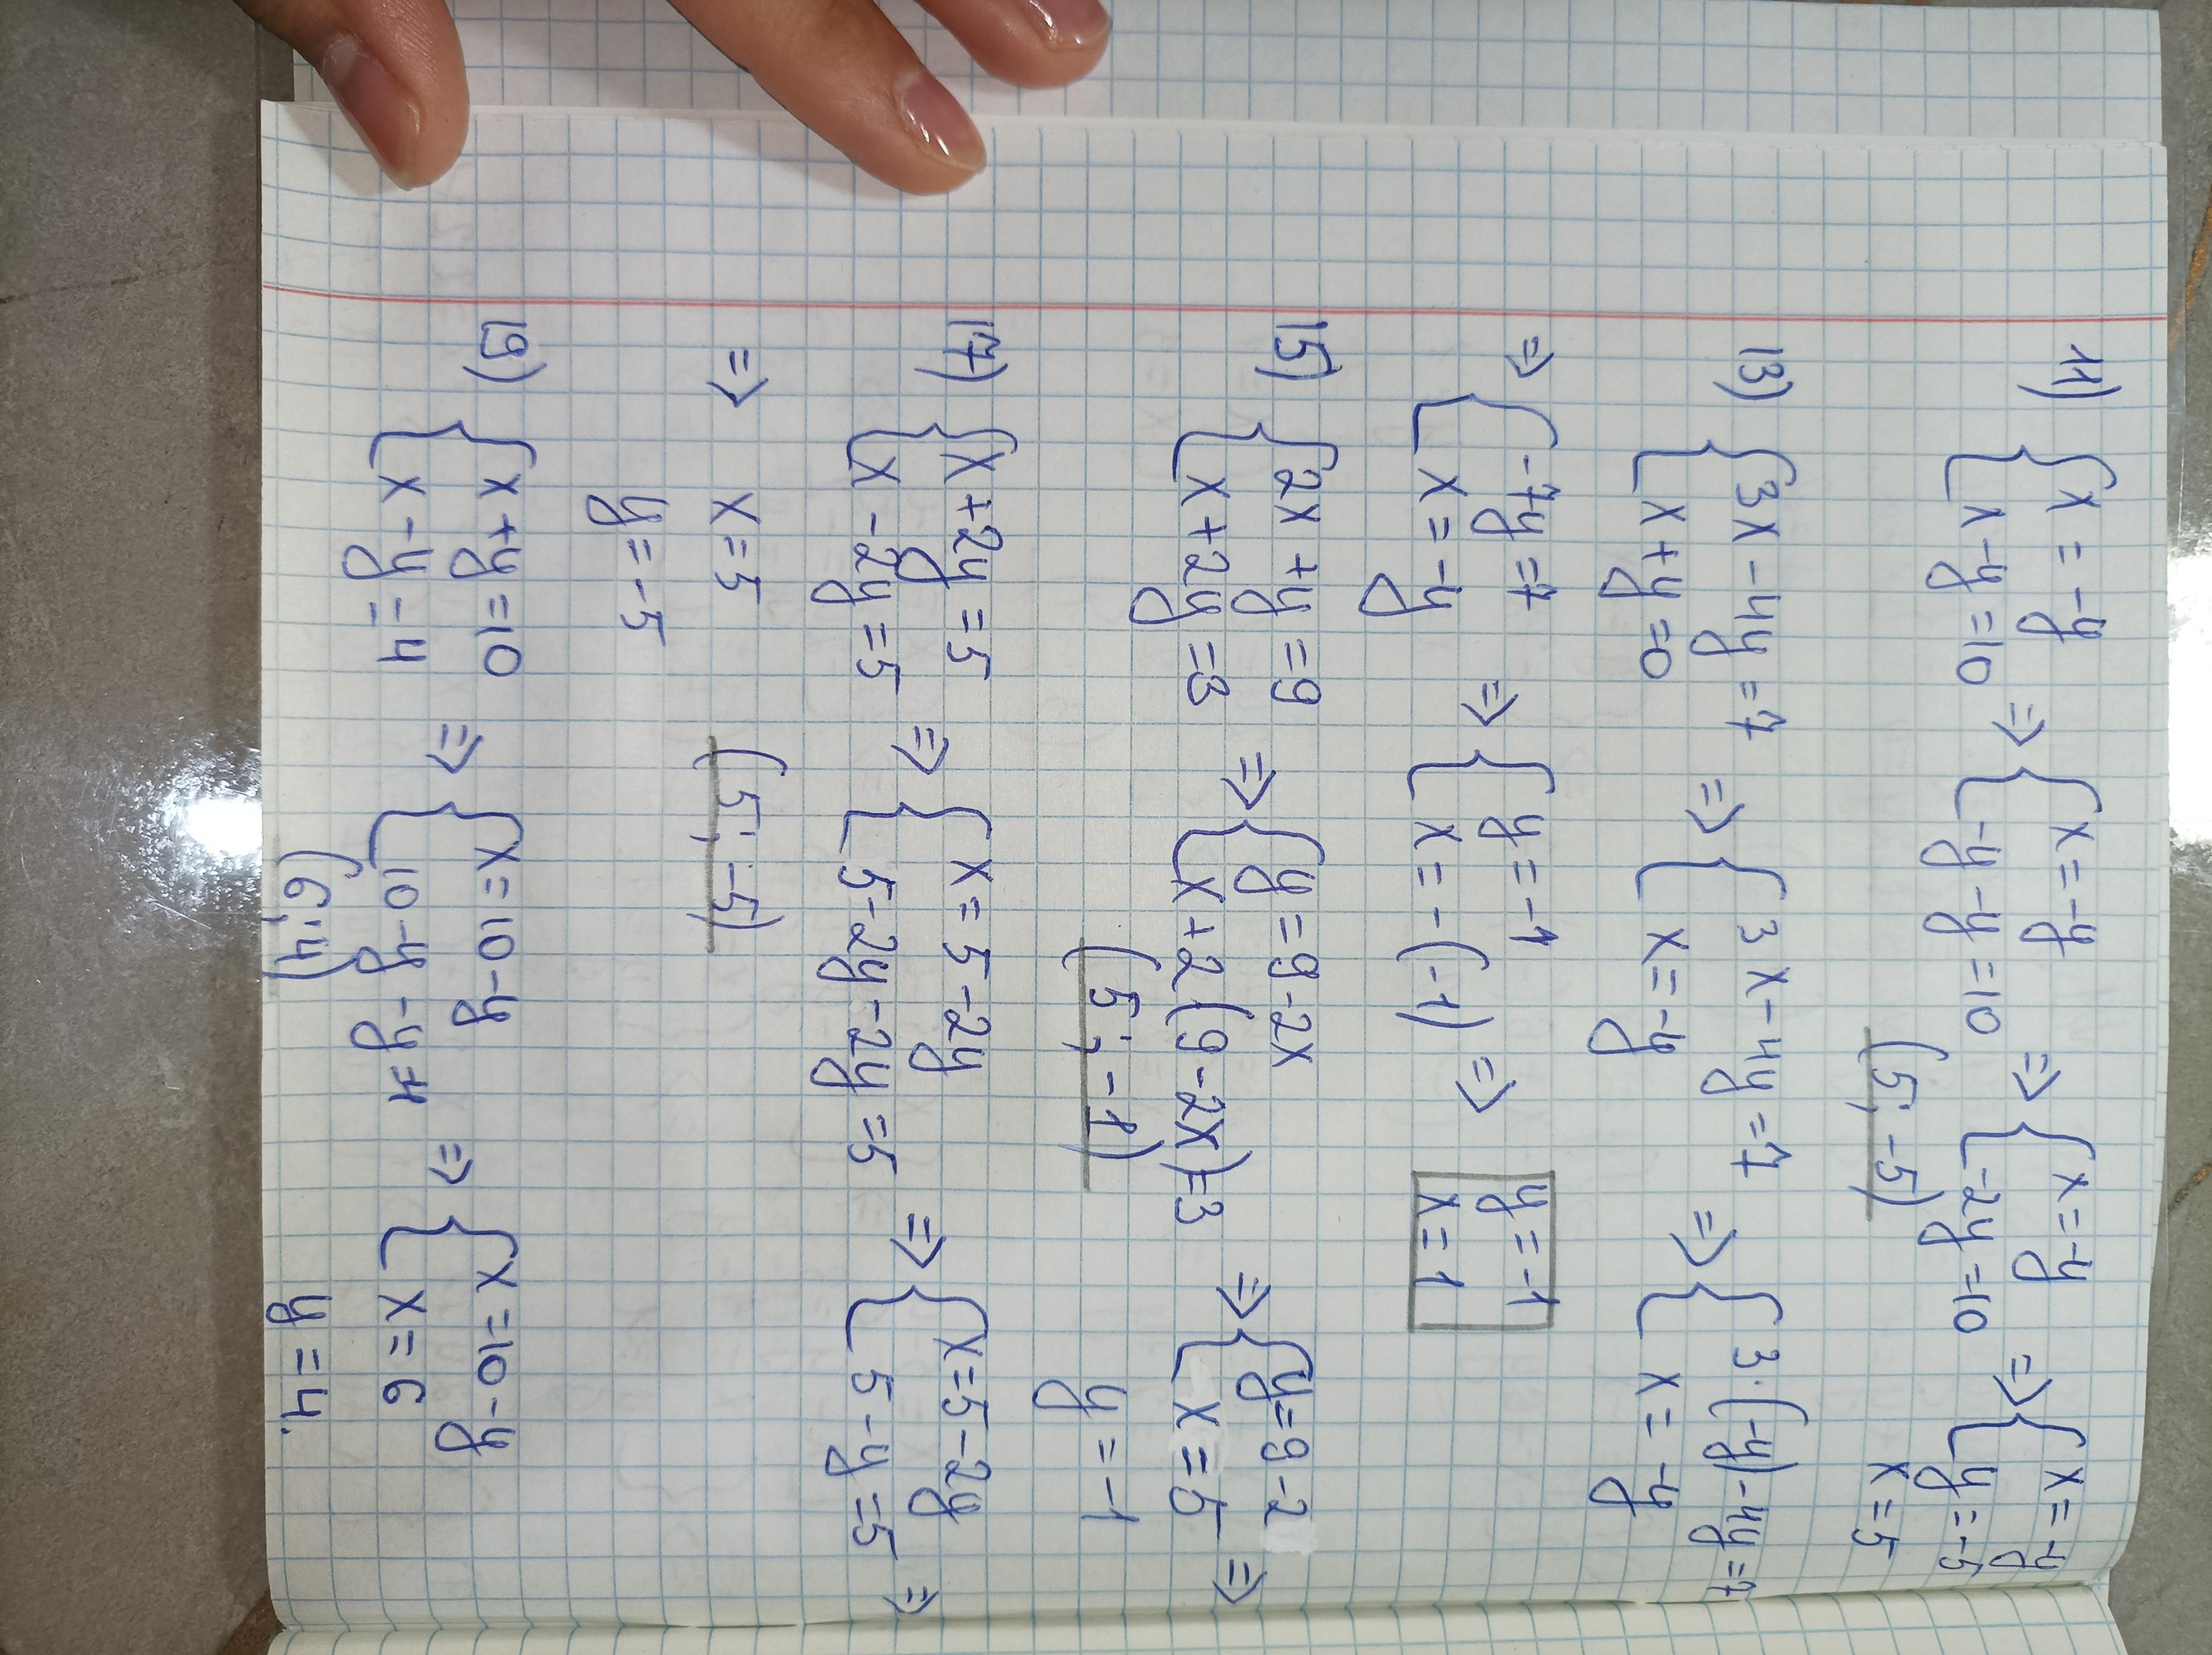 11) { x = -y
{ x - y = 10 => { x = -y
{ -y - y = 10 => { x = -y
{ -2y = 10 => { x = -y
{ y = -5
x = 5
(5; -5)
13) { 3x - 4y = 7
{ x + y = 0 => { 3x - 4y = 7
{ x = -y => { 3·(-y) - 4y = 7
{ x = -y
=> { -7y = 7
{ x = -y => { y = -1
{ x = -(-1) => y = -1
x = 1
15) { 2x + y = 9
{ x + 2y = 3 => { y = 9 - 2x
{ x + 2(9 - 2x) = 3 => { y = 9 - 2
{ x = 5 =>
(5; -1)
y = -1
17) { x + 2y = 5
{ x - 2y = 5 => { x = 5 - 2y
{ 5 - 2y - 2y = 5 => { x = 5 - 2y
{ 5 - y = 5 =>
=> x = 5
y = -5
(5; -5)
19) { x + y = 10
{ x - y = 4 => { x = 10 - y
{ 10 - y - y = 4 => { x = 10 - y
{ x = 6
(6; 4)
y = 4.